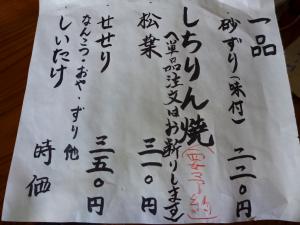 一品
砂ずり(味付) 二二〇円
しちりん焼(要予約)
(単品注文はお断りします)
松葉 三一〇円
せせり 三五〇円
なんこつ・おや・ずり他
しいたけ 時価